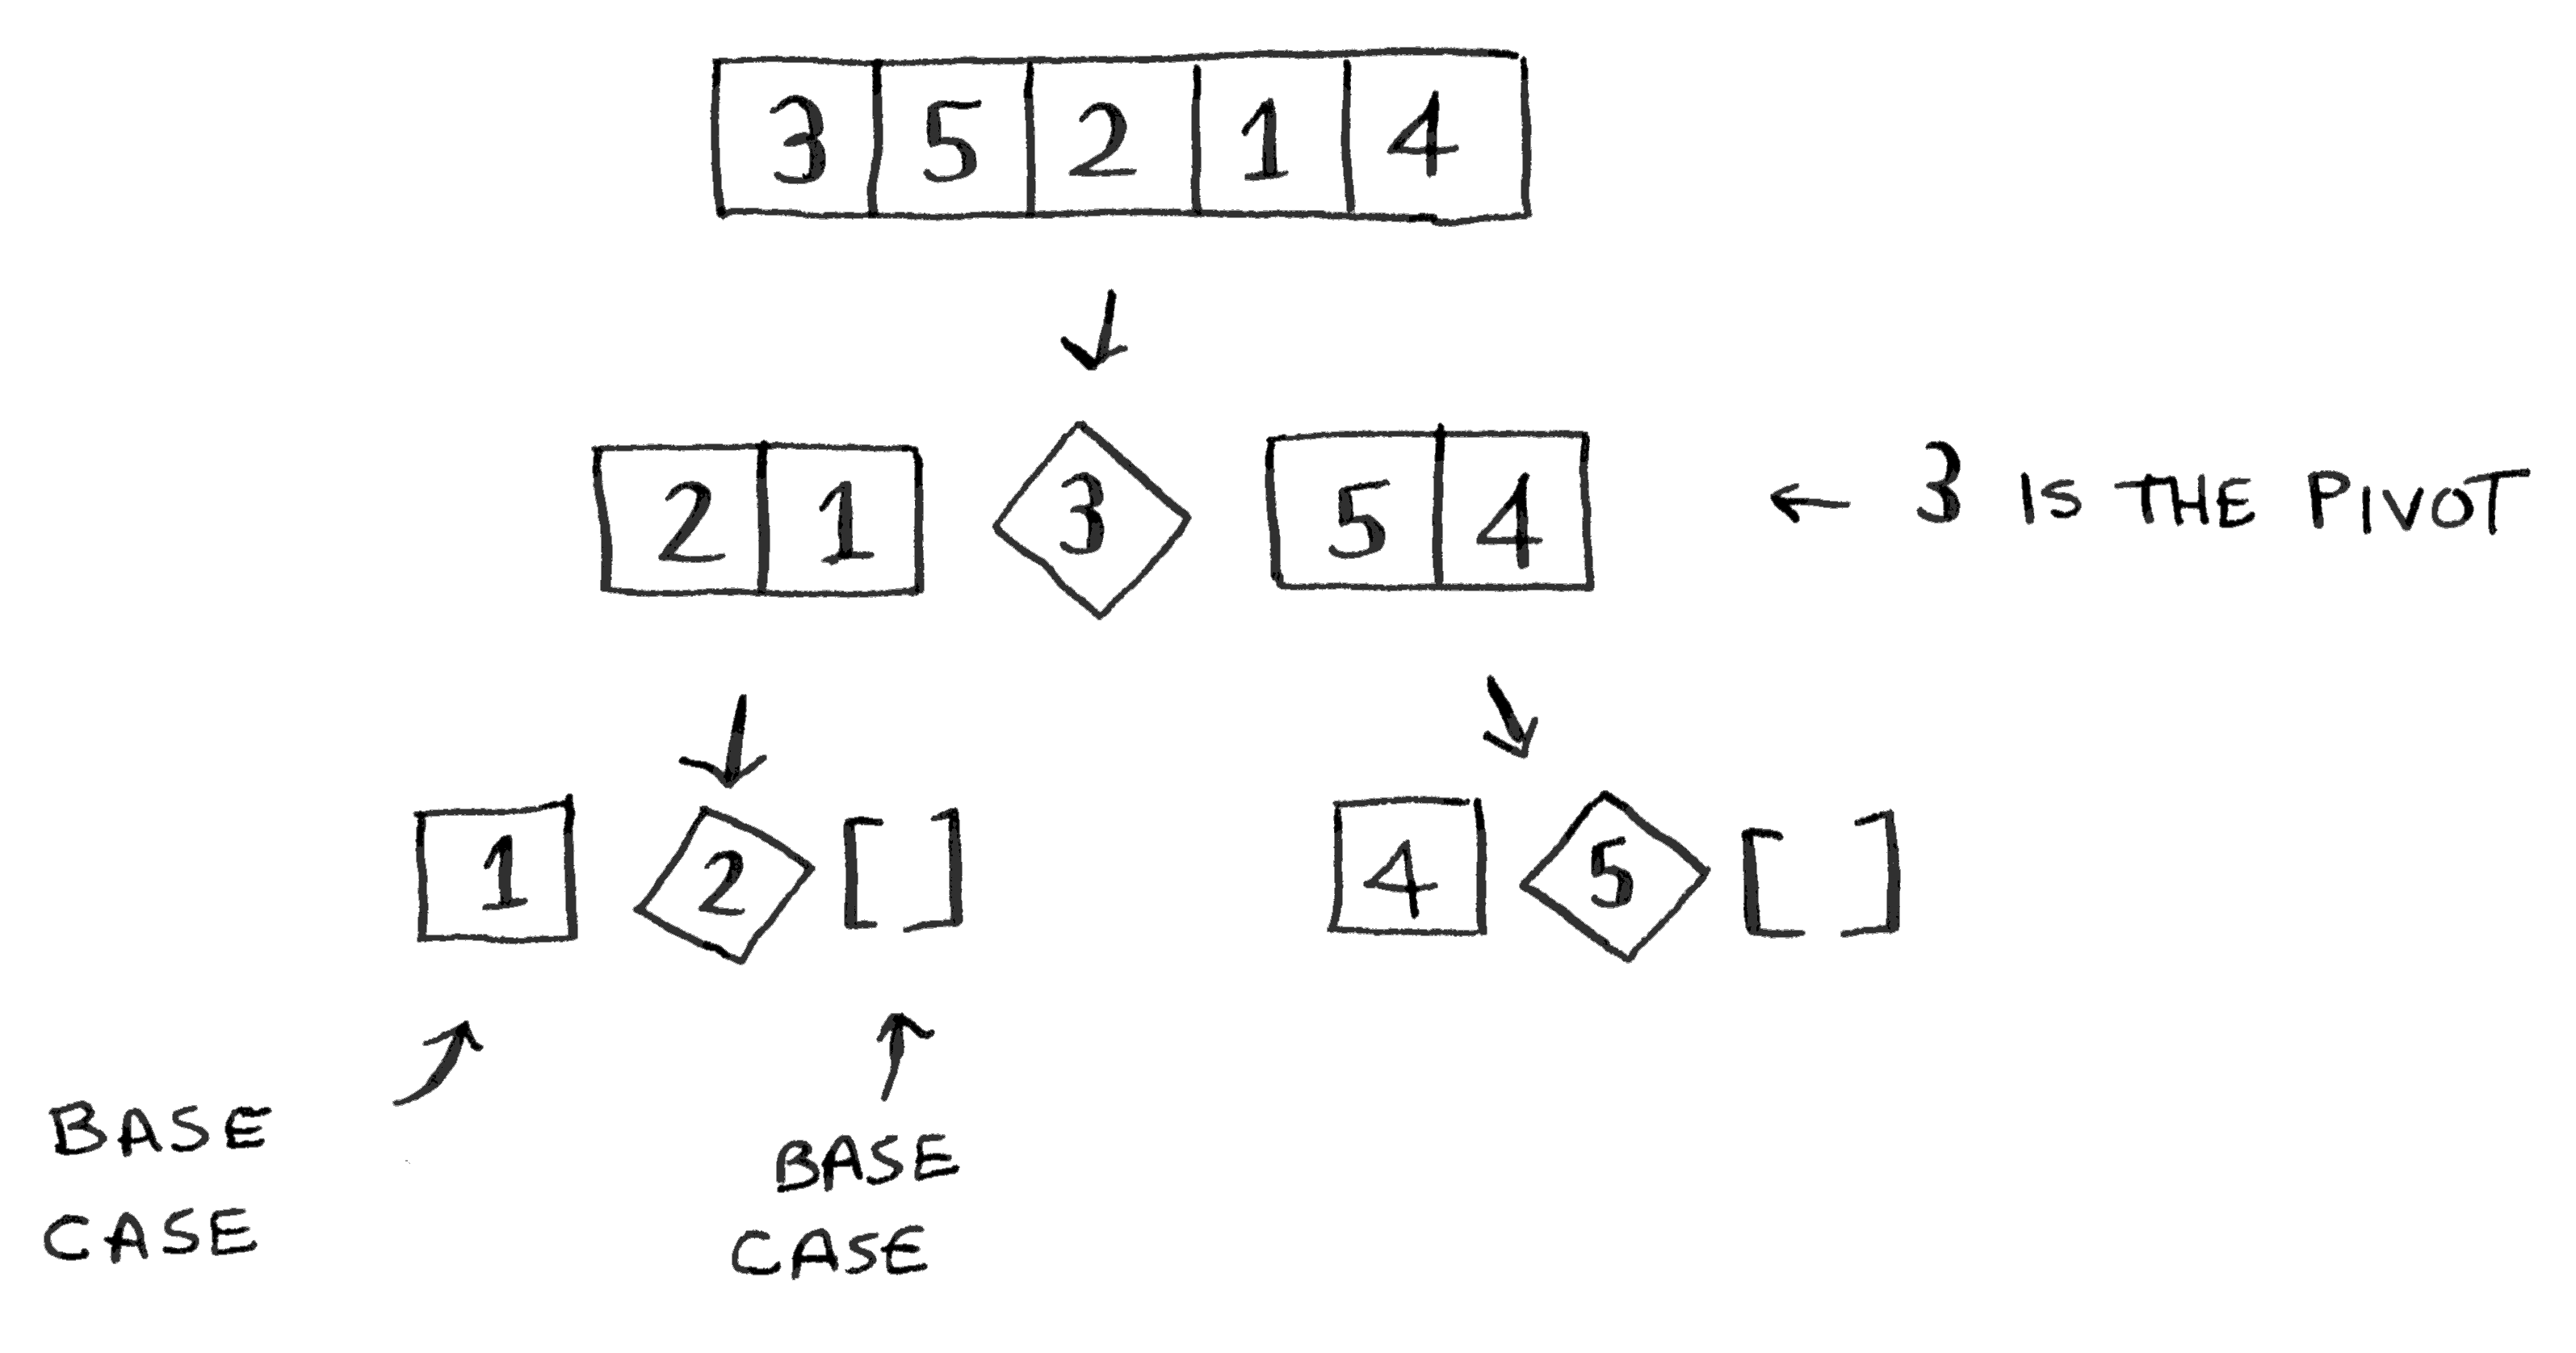 3 5 2 1 4
2 1 3 5 4 ← 3 IS THE PIVOT
1 2 [ ] 4 5 [ ]
BASE
CASE
BASE
CASE